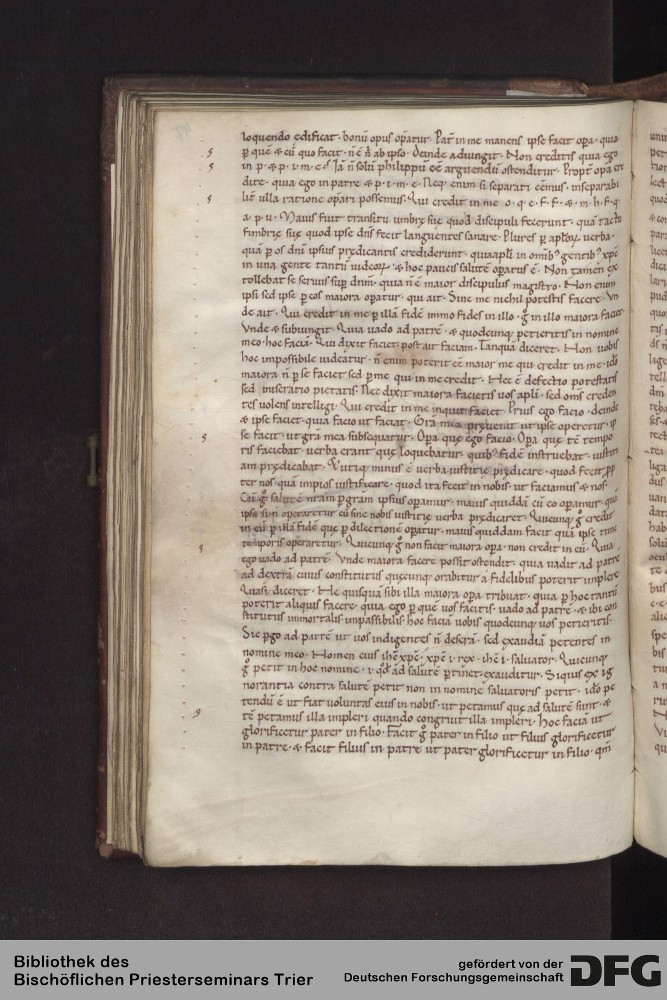 loquendo edificat. bonū opus opatur. Pat̄ in me manens ipse facit opa. quia
p quē & cū quo facit. n̄ ē n̄ ab ipso. Deinde adiungit. Non creditis quia ego
in p. & p. i. m. ē. Iā n̄ solū philippū eē arguendū ostenditur. Propt̄ opa cre
dite. quia ego in patre & p. i. m. e. Neq; enim si separati eēmus. inseparabi
lit̄ ulla ratione opari possemus. Qui credit in me. o. q. e. f. F. & m. h. f. q.
a. p. u. Maius fuit transitu umbrę suę quod discipuli fecerunt. quā tactu
fimbrię suę quod ipse dn̄s fecit languentes sanare. Plures p aplōꝝ verba.
quā p os dn̄i ipsius prędicantis crediderunt.
in una gente tantū & hoc paucis salutē opatus ē. Non tamen ex
tollebat se seruus sup dnm̄. quia n̄ ē maior discipulus magistro. Non enim
ipsi sed ipse p eos maiora opatur. qui ait. Sine me nichil potestis facere. Vn
de ait. Qui credit in me p illā fidē immo fides in illo. g̊ in illo maiora faciet.
Vnde & subiungit. Quia uado ad patrē. & quodcunq; petieritis in nomine
meo. hoc faciā. Qui dixit faciet. post ait faciam. Tanquā diceret. Non uobis
hoc impossibile uideatur. n̄ enim poterit eē maior me qui credit in me. idō
maiora n̄ p se faciet sed p me qui in me credit. Nec ē defectio potestatis
sed miseratio pietatis. Nec dixit maiora facietis uos apli. sed om̄s creden
tes volens intelligi. Qui credit in me inquit faciet. Prius ego facio. deinde
& ipse faciet. quia facio ut faciat. Gr̄a mea pręuenit ut ipse operetur. ip
se facit. ut gr̄a mea subsequatur. Opa quę ego facio. Opa quę tē tempo
ris faciebat. verba erant quę loquebatur. quib; fidē instruebat. iustiti
am prędicabat. Vtiq; minus ē verba iustitię prędicare. quod fecit p̄p
ter nos. quā impios iustificare. quod ita fecit in nobis. ut faciamus & nos.
Cū g̊ salutē nr̄am p gr̄am ipsius opamur. maius quiddā cū eo opamur. quā
ipse si n̄ operaretur cū sine nobis iustitię verba prędicaret. Quicunq; g̊ credit
in eū p illā fidē quę p dilectionē opatur. maius quiddam facit quā ipse tunc
temporis operaretur. Quicunq; g̊ non facit maiora opa. non credit in eū. Quia
ego uado ad patrē. Vnde maiora facere possit ostendit. quia uadit ad patrē
ad dexterā cuius constitutus quęcunq; orabitur a fidelibus poterit implere
Quasi diceret. Ne quisquā sibi illa maiora opa tribuat. quia p hoc tantū
poterit aliquis facere. quia ego p quē uos facitis. uado ad patrē. & ibi con
stitutus immortalis. impassibilis. hoc faciā uobis quodcunq; uos petieritis.
Sic pgo ad patrē ut uos indigentes n̄ deserā. sed exaudiā petentes in
nomine meo. Nomen eius ihc̄ xpc̄. xpc̄ .i. rex. ihc̄ .i. saluator. Quicunq;
g̊ petit in hoc nomine .i. qd̄ ad salutē ptinet. exauditur. Siquis ex ig
norantia contra salutē petit non in nomine saluatoris petit. idō pe
tendū ē ut fiat voluntas eius in nobis. ut petamus quę ad salutē sunt. &
tē petamus illa impleri quando congruit illa impleri. Hoc faciā ut
glorificetur pater in filio. Facit g̊ pater in filio ut filius glorificetur
in patre. & facit filius in patre ut pater glorificetur in filio. qm̄
Bibliothek des
Bischöflichen Priesterseminars Trier
gefördert von der
Deutschen Forschungsgemeinschaft
DFG